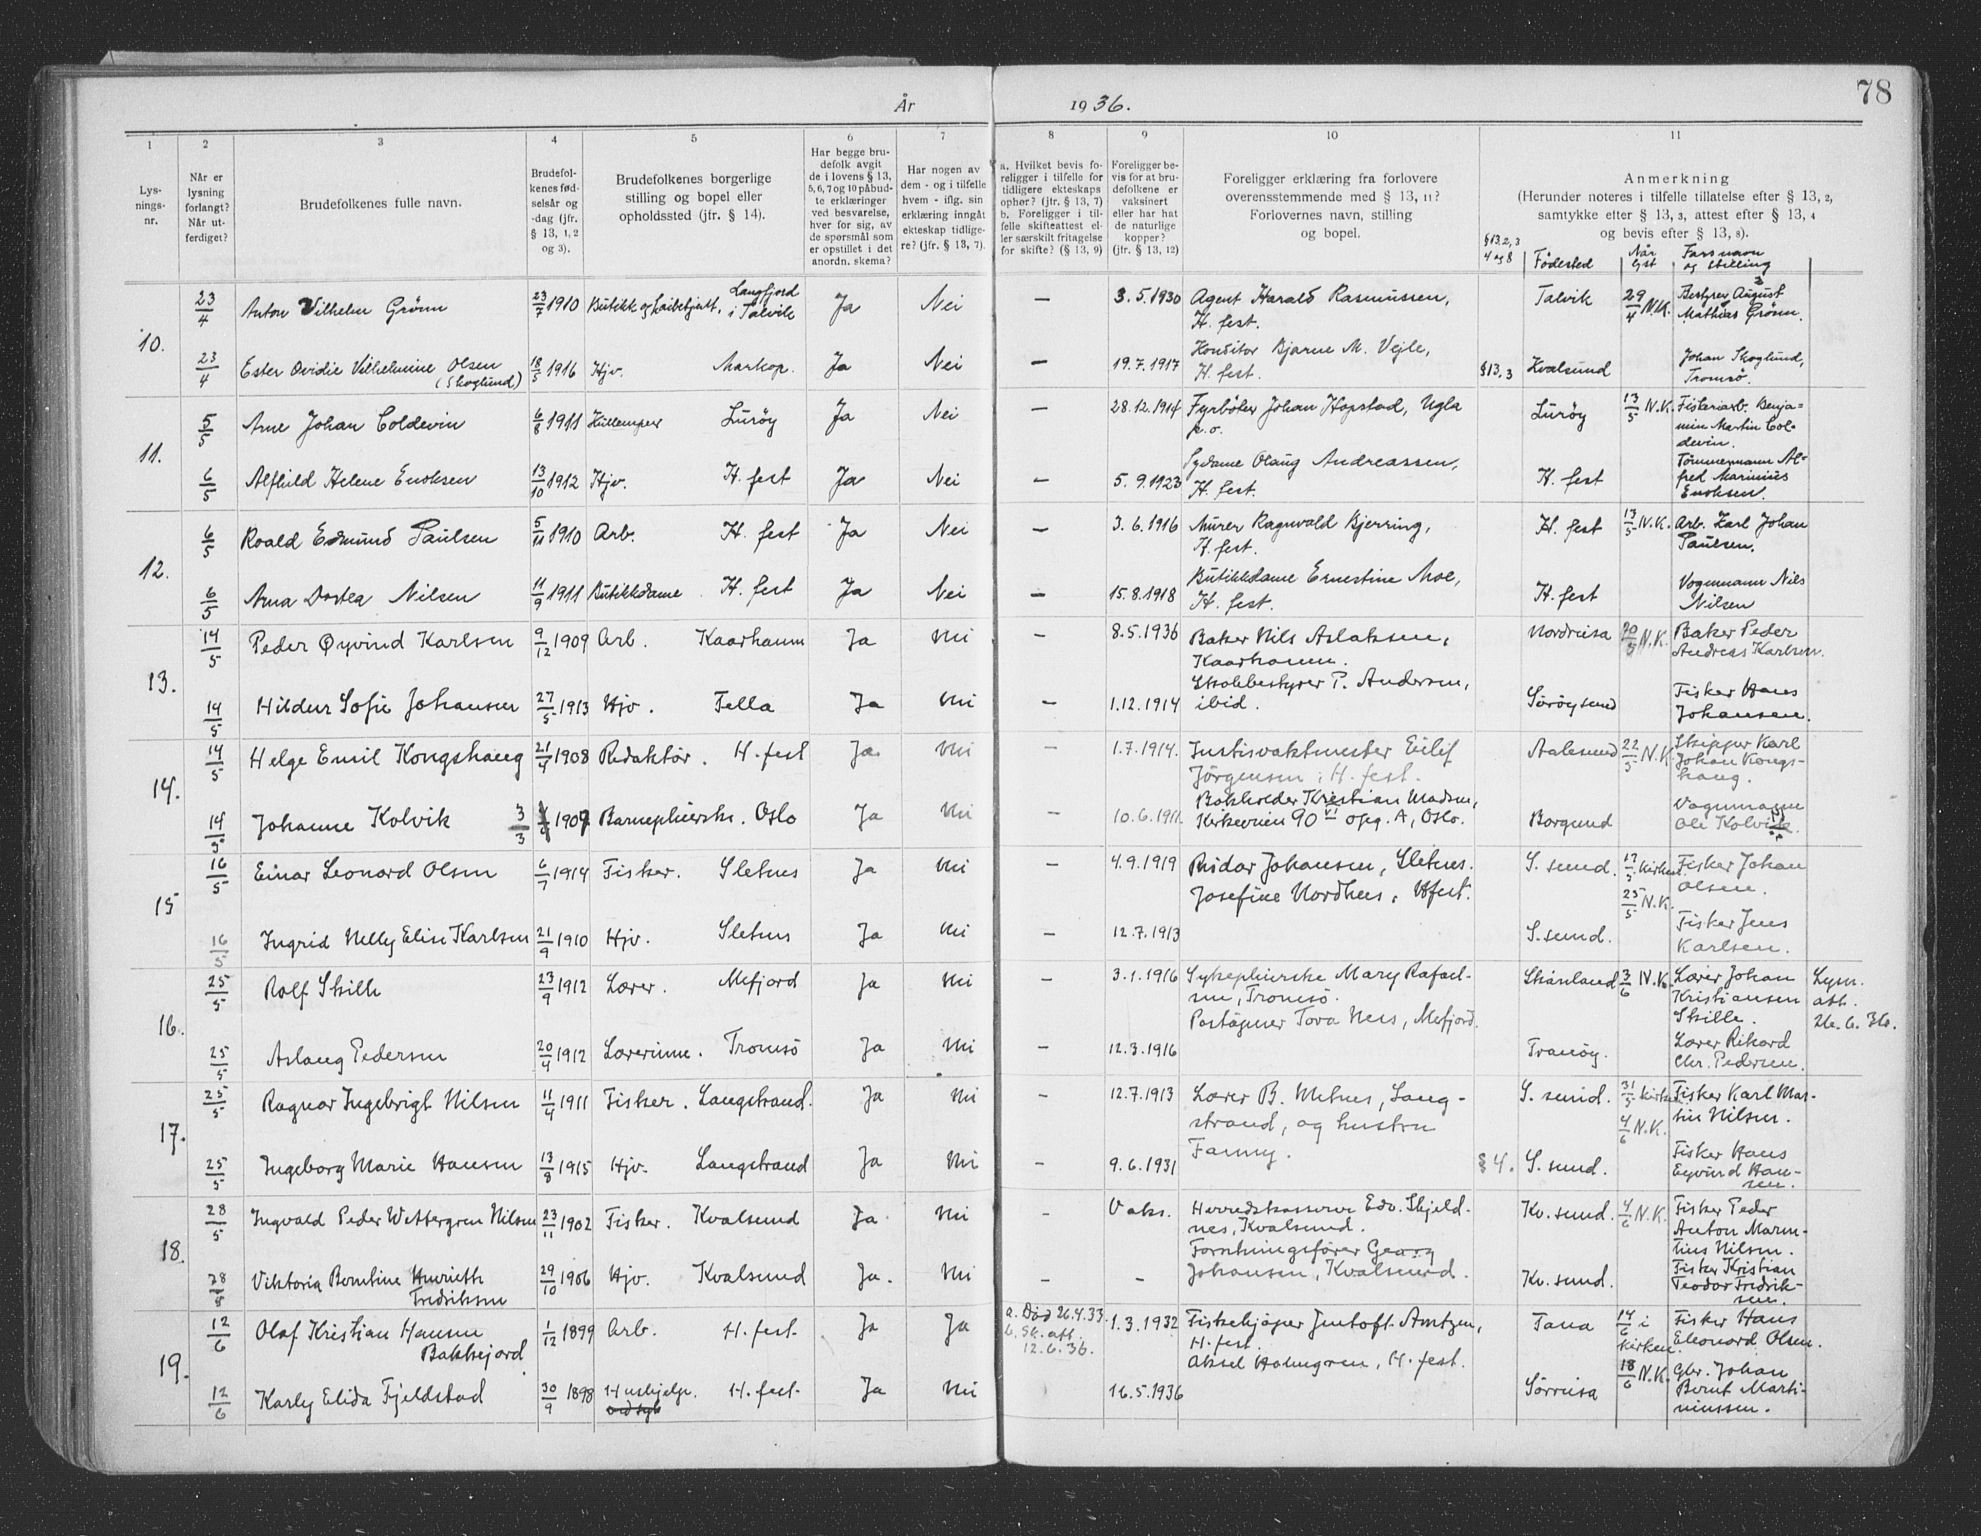 78
År 1936.
1 2 3 4 5 6 7 8 9 10 11
Lys-
nings-
nr.
Når er
lysning
forlangt?
Når ut-
ferdiget?
Brudefolkenes fulle navn.
Brudefol-
kenes fød-
selsår og
-dag (jfr.
§ 13, 1, 2
og 3).
Brudefolkenes borgerlige
stilling og bopel eller
opholdssted (jfr. § 14).
Har begge bru-
defolk avgit
de i lovens § 13,
5, 6, 7 og 10 påbud-
te erklæringer
ved besvarelse,
hver for sig, av
de spørsmål som
er opstillet i det
anordn. skema?
Har nogen av
dem - og i tilfelle
hvem - iflg. sin
erklæring inngått
ekteskap tidlige-
re? (jfr. § 13, 7).
a. Hvilket bevis fo-
religger i tilfelle for
tidligere ekteskaps
ophør? (jfr. § 13, 7)
b. Foreligger i til-
felle skifteattest el-
ler særskilt fritagelse
for skifte? (§ 13, 9)
Foreligger be-
vis for at bru-
defolkene er
vaksinert
eller har hat
de naturlige
kopper?
(jfr. § 13, 12)
Foreligger erklæring fra forlovere
overensstemmende med § 13, 11?
Forlovernes navn, stilling
og bopel.
Anmerkning
(Herunder noteres i tilfelle tillatelse efter § 13, 2,
samtykke efter § 13, 3, attest efter § 13, 4
og bevis efter § 13, 8).
§13.2,3
4 og 8
Fødested
Når
lyst
Fars navn
og stilling
10.
23/4 Anton Vilhelm Grönn 23/7 1910 Butikk og Langfjord i Talvik Ja Nei — 3.5.1930 Agent Harald Rasmussen, H. fest. Talvik 29/4 N.K. Bestyrer August Mathias Grönn.
23/4 Ester Ovidie Vilhelmine Olsen (Skoglund) 18/5 1916 Hjv. Markop. Ja Nei — 19.7.1917 Konditor Bjarne M. Vejle, H. fest. §13,3 Kvalsund Johan Skoglund, Tromsö.
11.
5/5 Arne Johan Coldevin 6/8 1911 Lüröy Ja Nei — 28.12.1914 Fyrböter Johan Hopstad, Ugla p.o. Lüröy 13/5 N.K. Fiskeriarb. Benja-
min Martin Col-
devin.
6/5 Alfhild Helene Enoksen 13/10 1912 Hjv. H. fest Ja Nei — 5.9.1923 Sydame Olaug Andreassen, H. fest. H. fest Tömmermann Al-
fred Marinius
Enoksen.
12.
6/5 Roald Edmund Paulsen 5/11 1910 Arb. H. fest Ja Nei — 3.6.1916 Murer Ragnvald Bjerring, H. fest. H. fest 13/5 N.K. Arb. Karl Johan
Paulsen.
6/5 Arna Dortea Nilsen 11/9 1911 Butikkdame H. fest Ja Nei — 15.8.1918 Butikkdame Ernestine Moe, H. fest. H. fest Vognmann Nils
Nilsen
13.
14/5 Peder Øyvind Karlsen 9/12 1909 Arb. Kaarhamn Ja Nei — 8.5.1936 Baker Nils Aslaksen, Kaarhamn. Nordreisa 20/5 N.K. Baker Peder
Andreas Karlsen.
14/5 Hildur Sofie Johansen 27/5 1913 Hjv. Fella Ja Nei — 1.12.1914 Skolebestyrer P. Andersen, ibid. Sørøysund Fisker Hans
Johansen.
14.
14/5 Helge Emil Kongshaug 21/4 1908 Redaktør. H. fest Ja Nei — 1.7.1914. Justisvaktmester Eilif
Jörgensen, H. fest. Aalesund 22/5 N.K. Skipper Karl
Johan Kongs-
haug.
14/5 Johanne Kolvik 3/3 1907 Barnepleierske. Oslo Ja Nei — 10.6.1911. Bokholder Kristian Madsen,
Kirkeveien 90 VI opg. A, Oslo. Borgund Vognmann
Ole Kolvik.
15
16/5 Einar Leonard Olsen 6/7 1914 Fisker. Sletnes Ja Nei — 4.9.1919 Reidar Johansen, Sletnes.
Josefine Nordhus, H.fest. S. sund. 17/5 kirken 25/5 N.K. Fisker Johan
Olsen.
16/5 Ingrid Nelly Elise Karlsen 21/9 1910 Hjv. Sletnes Ja Nei — 12.7.1913 S. sund. Fisker Jens
Karlsen.
16.
25/5 Rolf Skille 23/9 1912 Lærer. Mefjord Ja Nei — 3.1.1916 Sykepleierske Mary Rafael-
sen, Tromsö. Skånland 3/6 N.K. Lærer Johan
Kristiansen
Skille. Lysn.
att.
26.6.36.
25/5 Aslaug Pedersen 20/4 1912 Lærerinne. Tromsö Ja Nei — 12.3.1916 Poståpner Tora Nes, Mefjord. Tranöy. Lærer Rikard
Chr. Pedersen.
17.
25/5 Ragnar Ingebrigt Nilsen 11/4 1911 Fisker. Langstrand. Ja Nei — 12.7.1913 Lærer B. Metnes, Lang-
strand, og hustru
Fanny. S. sund. 31/5 kirken 4/6 N.K. Fisker Karl Mar-
tin Nilsen.
25/5 Ingeborg Marie Hansen 13/8 1915 Hjv. Langstrand Ja Nei — 9.6.1931 §4. S. sund. Fisker Hans
Eyvind Han-
sen.
18.
28/5 Ingvald Peder Wettergren Nilsen 23/11 1902 Fisker. Kvalsund Ja Nei — Vaks. Herredskasserer Edv. Skjeld-
nes, Kvalsund. Kv. sund. 4/6 N.K. Fisker Peder
Anton Maren-
tius Nilsen.
28/5 Viktoria Berntine Henriette
Fredriksen 29/10 1906 Hjv. Kvalsund Ja. Nei — — Forretningsfører Georg
Johansen, Kvalsund. Kv. sund. Fisker Kristian
Teodor Fredrik-
sen.
19.
12/6 Olaf Kristian Hansen
Bakkejord 1/12 1899 Arb. H. fest. Ja Ja a. Død 26.4.33.
b. Sk. att.
12.6.36. 1.3.1932 Fiskekjøper Jentoft Arntzen,
H. fest. Tana 14/6 i kirken. Fisker Hans
Eleonard Olsen.
12/6 Karly Elida Fjeldstad 30/9 1898 Hushjelp. H. fest. Ja Nei 16.5.1936 Aksel Holmgren, H. fest. Sørreisa 18/6 N.K. Gbr. Johan
Bernt Marti-
niussen.